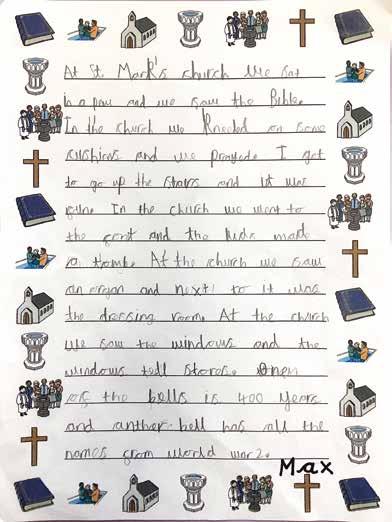 At St. Mark's church we sat
in a pew and we saw the Bible.
In the church we Kneeled on some
cushions and we prayed. I got
to go up the stairs and it was
In the church we went to
the font and the kids made
At the church we saw
an organ and next to it was
the dressing room. At the church
we saw the windows and the
windows tell stores.
the bells is 400 years
and anther bell has all the
names from world war 2.
Max